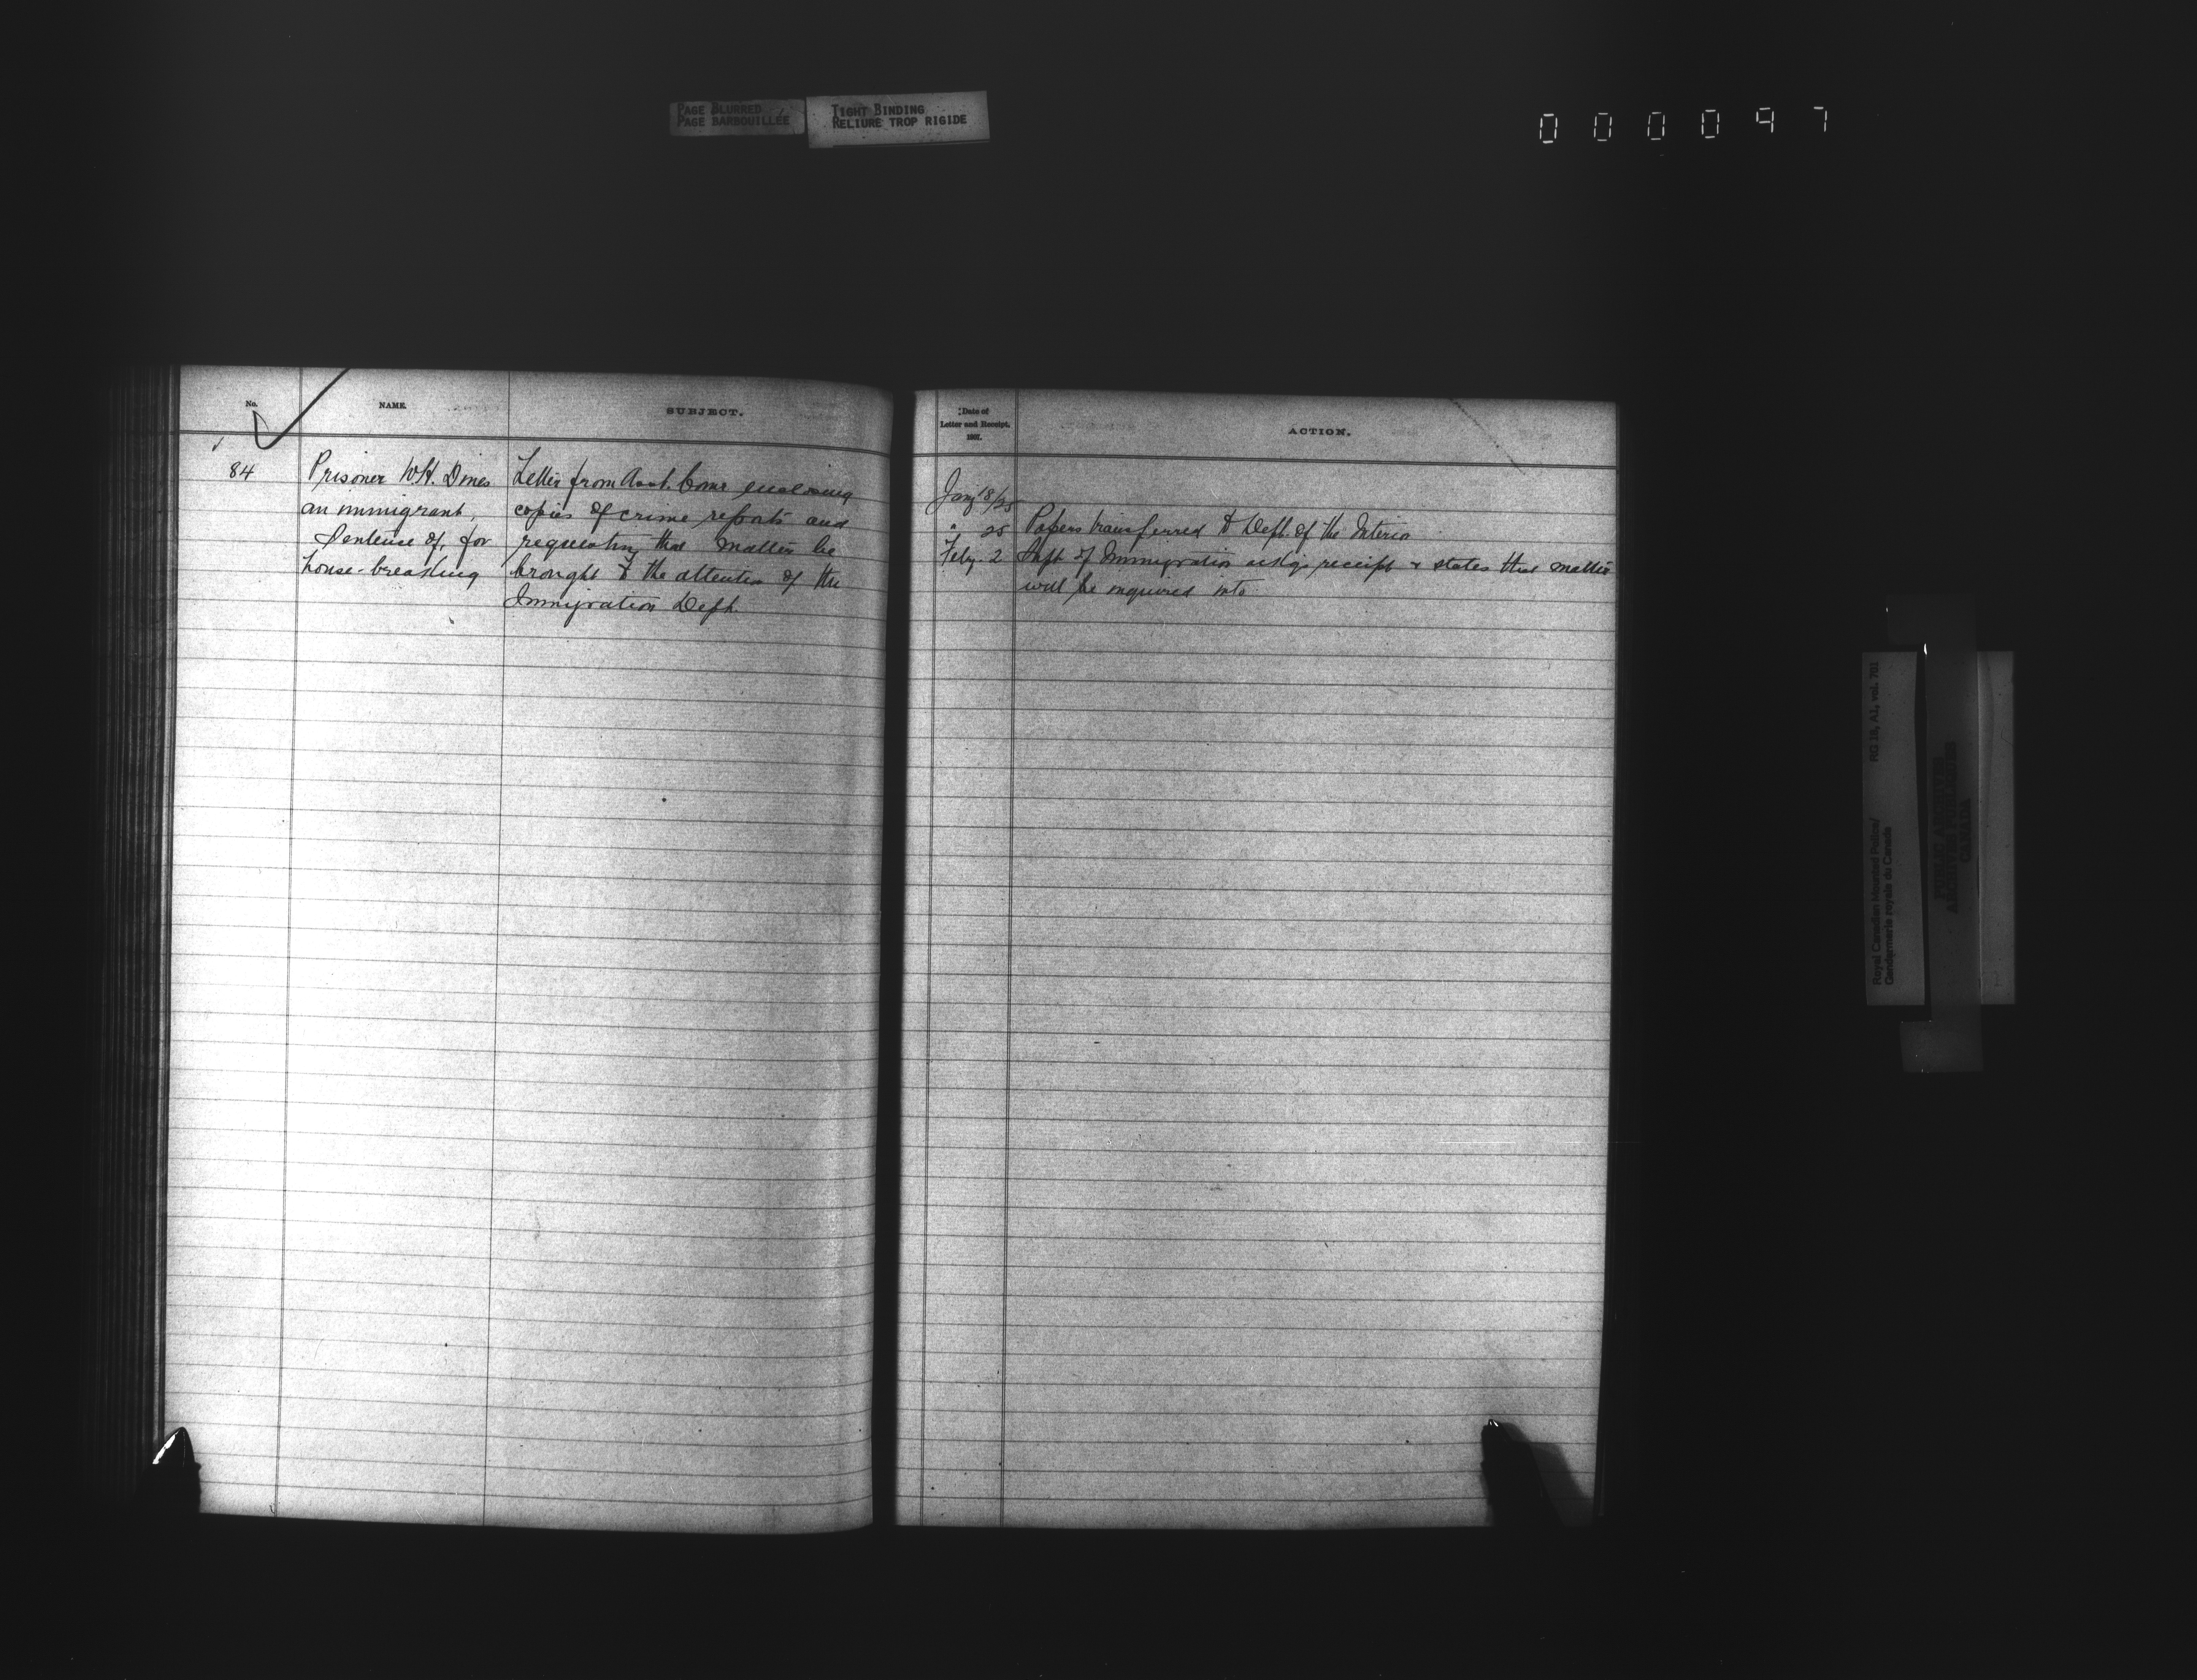 PAGE BLURRED
PAGE BARBOUILLÉE
TIGHT BINDING
RELIURE TROP RIGIDE
000097
No.
NAME.
SUBJECT.
84
Prisoner W.H. Dines
an immigrant,
Sentence of, for
house-breaking
Letter from Asst. Comr enclosing
copies of crime reports and
requesting that matter be
brought to the attention of the
Immigration Dept.
Date of
Letter and Receipt.
1907.
ACTION.
Jany 18/25
" 25 Papers transferred to Dept. of the Interior
Feby. 2 Supt of Immigration ackgs receipt & states that matter
will be inquired into
Royal Canadian Mounted Police/ RG 18, A1, vol. 701
Gendarmerie royale du Canada
PUBLIC ARCHIVES
ARCHIVES PUBLIQUES
CANADA